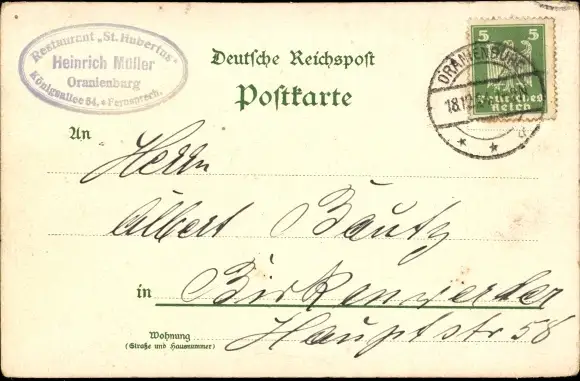 Restaurant „St. Hubertus"
Heinrich Müller
Oranienburg
Königsallee 54, * Fernsprech.
Deutsche Reichspost
Postkarte
5 5
Deutsches
Reich
ORANIENBURG
18.12
d
An
Herrn
Albert Bautz
in Birkenwerder
Wohnung
(Straße und Hausnummer)
Hauptstr 58